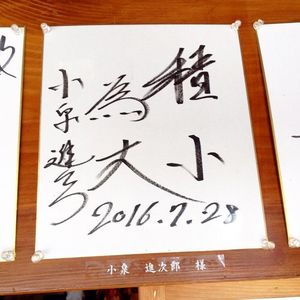 積小
為大
小泉進次郎
2016.7.28
小泉 進次郎 様